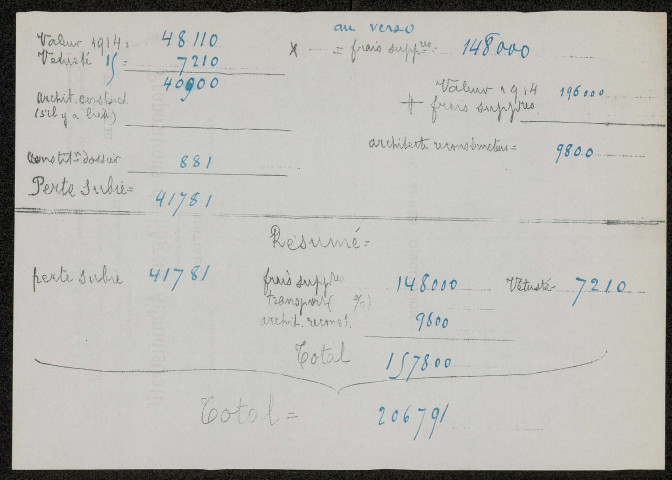 au verso
Valeur 1914 = 48110
Vetusté 15 = 7210
40900
archit. constuct.
(s'il y a lieu)
constitn dossier 881
Perte subie = 41781
x = frais suppres = 148000
Valeur 1914
+ frais suppres 196000
architecte reconstructeur = 9800
Résumé =
perte subie 41781 frais suppres 148000 Vétusté 7210
transport ( %)
archit. reconst. 9800
Total 157800
Total = 206791